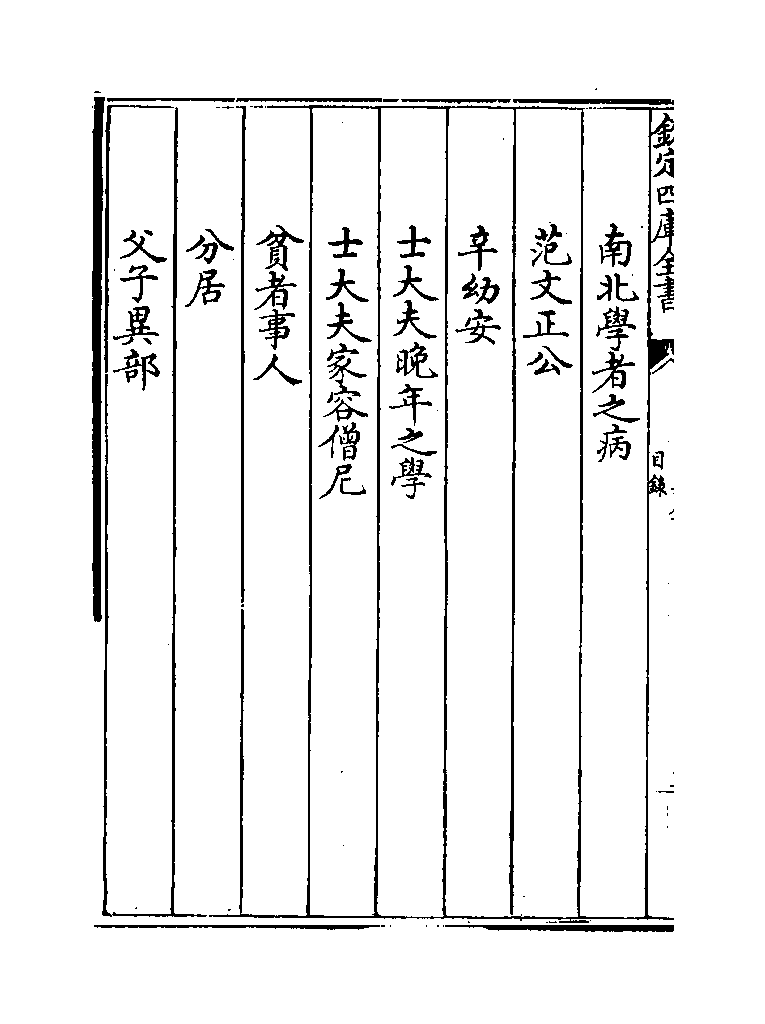 欽定四庫全書
目錄
南北學者之病
范文正公
辛幼安
士大夫晚年之學
士大夫家容僧尼
貧者事人
分居
父子異部